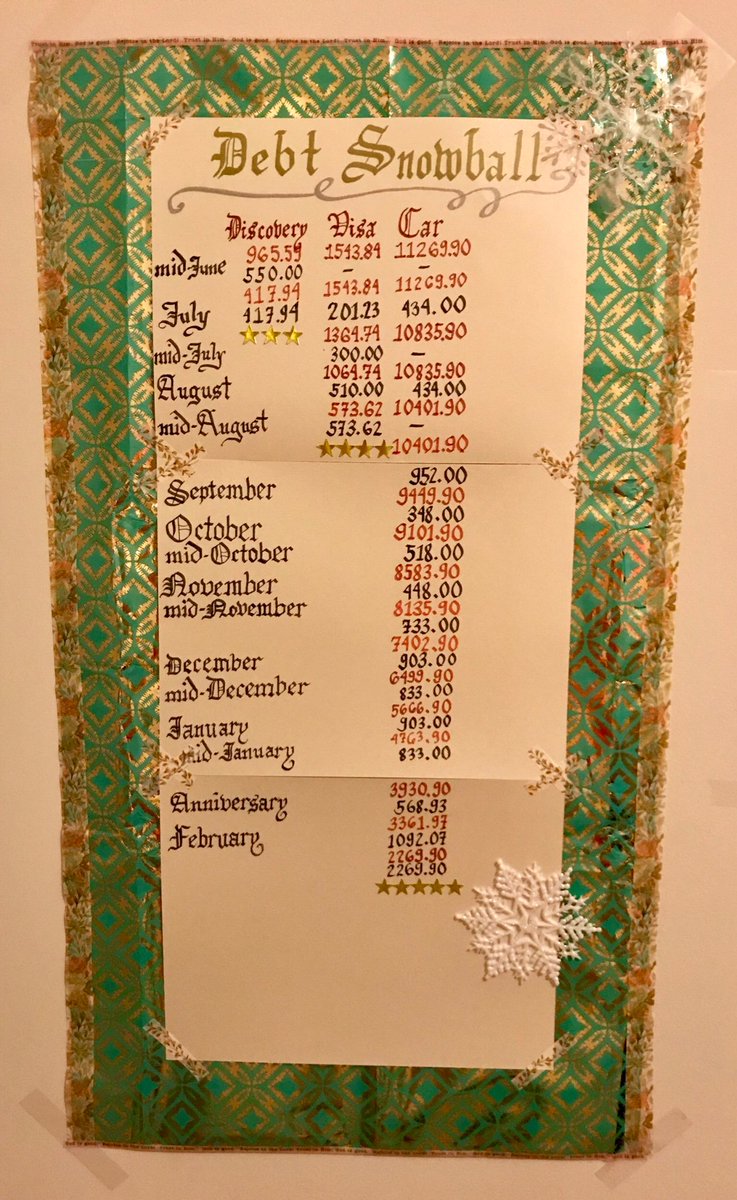 Trust in Him. God is good. Rejoice in the Lord! Trust in Him. God is good. God is good. Rejoice in the Lord! Trust in Him. God is good. Rejoice Lord! Trust in Him
Debt Snowball
Discovery Visa Car
965.59 1543.84 11269.90
mid-June 550.00 – –
417.94 1543.84 11269.90
July 417.94 201.23 434.00
1364.74 10835.90
mid-July 300.00 –
1064.74 10835.90
August 510.00 434.00
573.62 10401.90
mid-August 573.62 –
10401.90
952.00
September 9449.90
348.00
October 9101.90
mid-October 518.00
8583.90
November 448.00
mid-November 8135.90
733.00
7402.90
December 903.00
6499.90
mid-December 833.00
5666.90
January 903.00
4763.90
mid-January 833.00
3930.90
Anniversary 568.93
3361.97
February 1092.07
2269.90
2269.90